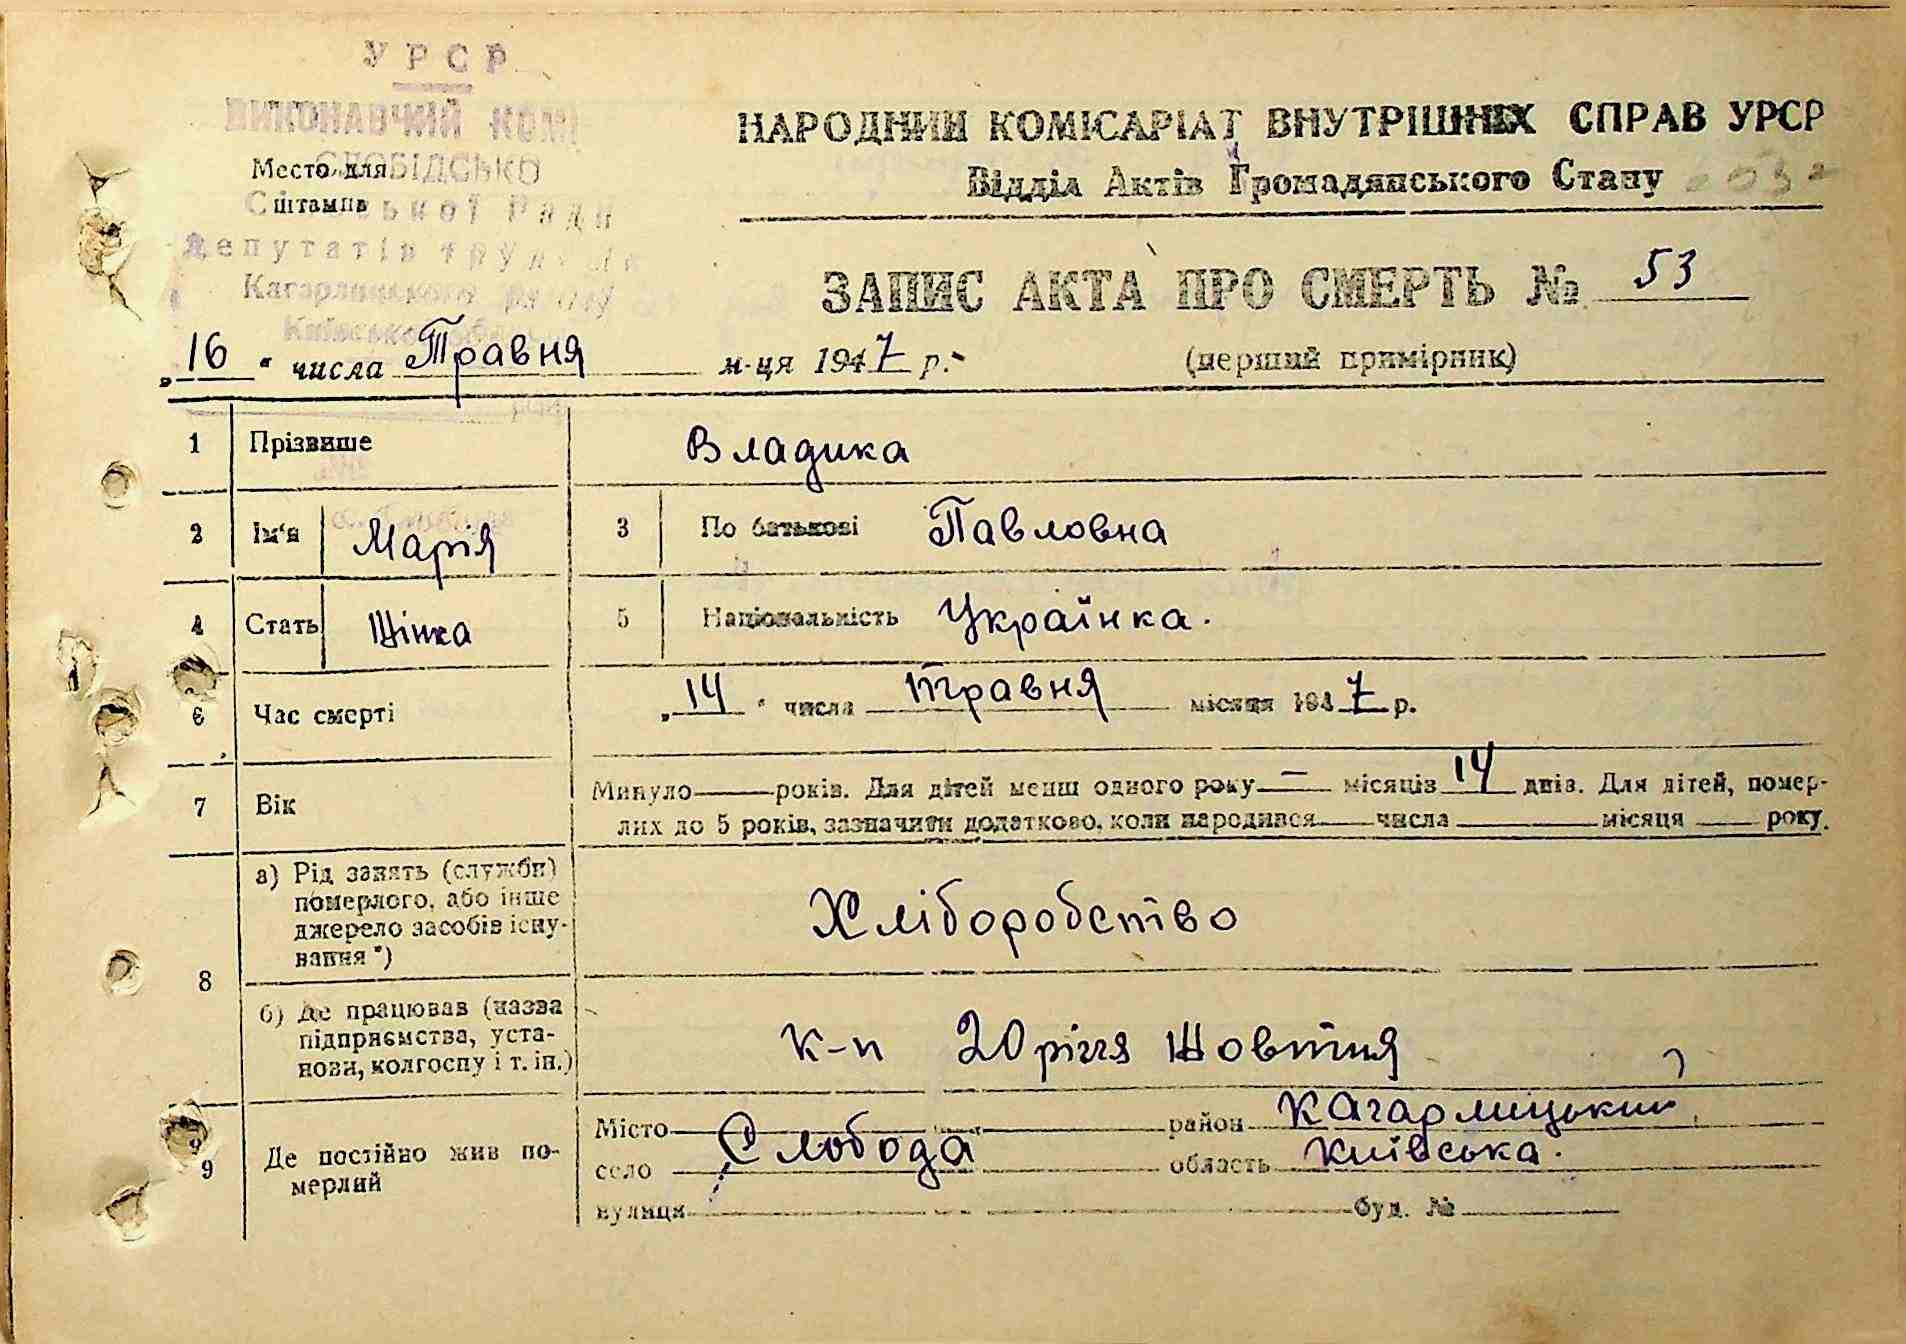 УРСР
ВИКОНАВЧИЙ КОМІ
СЛОБІДСЬКО
Место для
штампа
ської Ради
Депутатів
Кагарлицького району
НАРОДНИЙ КОМІСАРІАТ ВНУТРІШНІХ СПРАВ УРСР
Відділ Актів Громадянського Стану
ЗАПИС АКТА ПРО СМЕРТЬ № 53
„16“ числа Травня м-ця 1947 р.
(перший примірник)
1 Прізвище Владика
2 Ім'я Марія 3 По батькові Павловна
4 Стать Жінка 5 Національність Українка.
6 Час смерті „14“ числа травня місяця 1947 р.
7 Вік Минуло — років. Для дітей менш одного року — місяців 14 днів. Для дітей, помер-
лих до 5 років, зазначити додатково, коли народився — числа місяця року.
8 а) Рід занять (служби)
померлого, або інше
джерело засобів існу-
вання *)
Хліборобство
б) Де працював (назва
підприємства, уста-
нови, колгоспу і т. ін.)
к-п 20 річчя Жовтня
9 Де постійно жив по-
мерлий
Місто район Кагарлицький
село Слобода область Київська.
вулиця буд. №